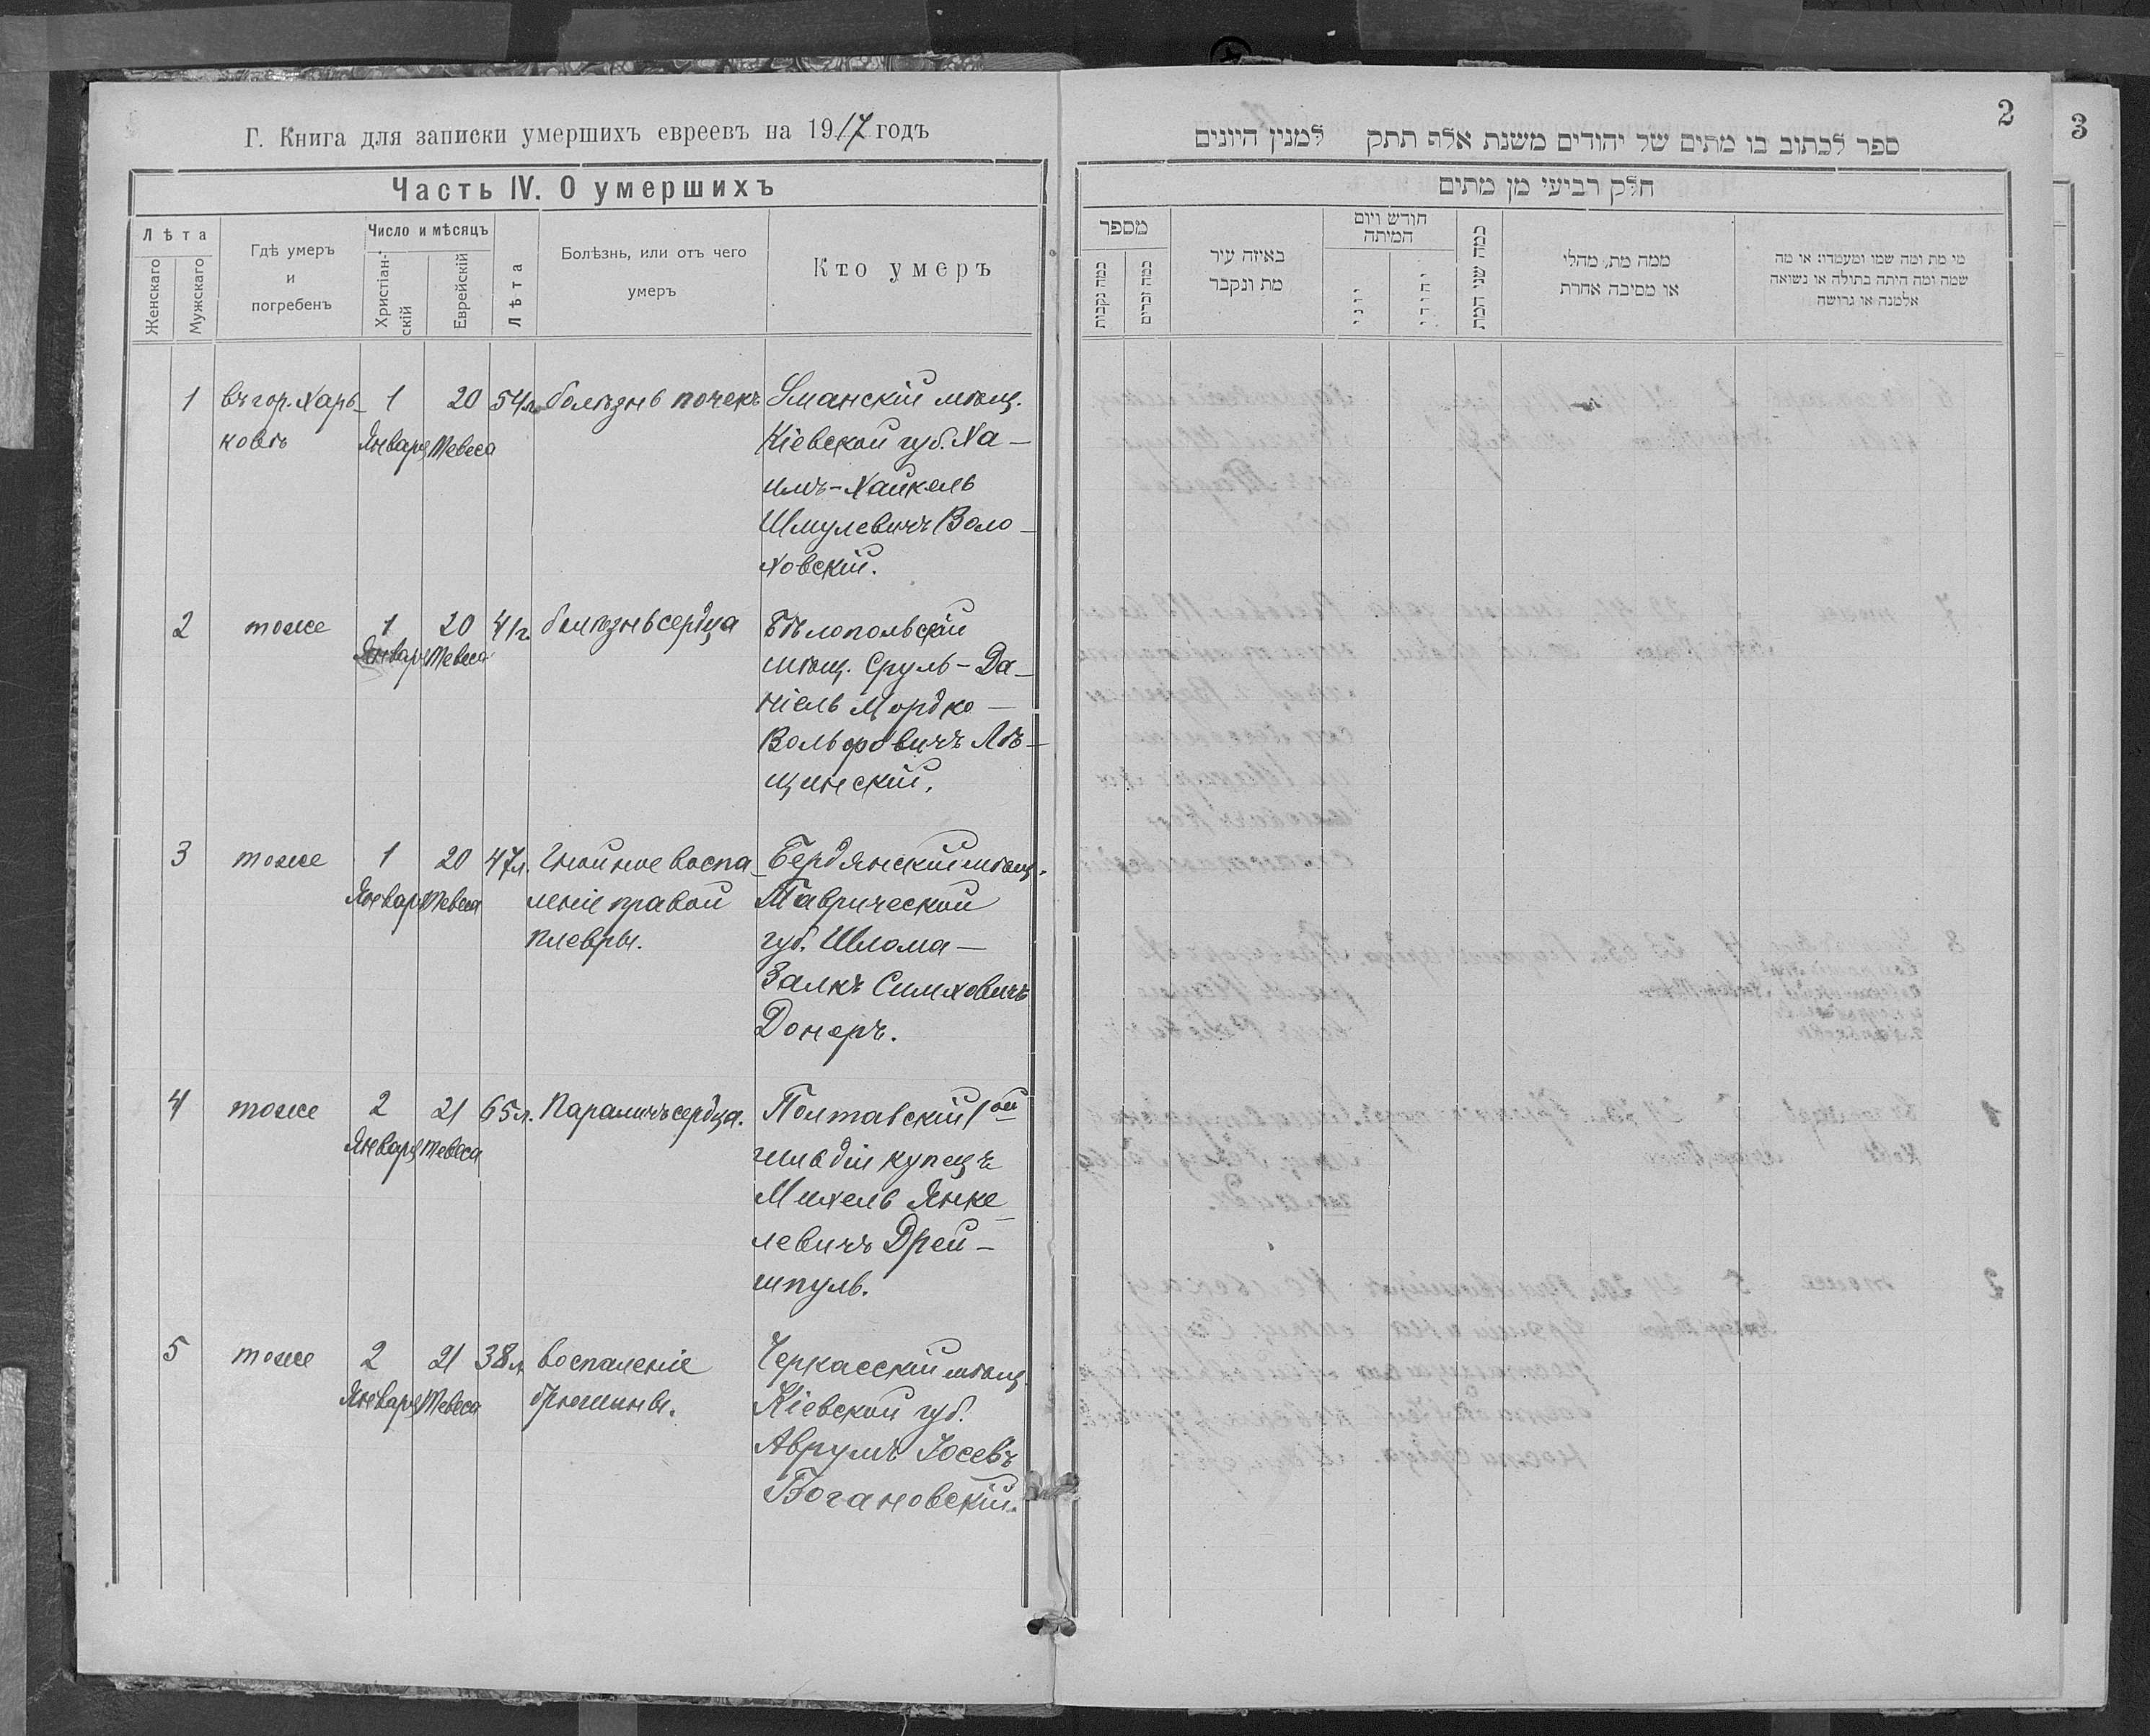 Г. Книга для записки умершихъ евреевъ на 1917 годъ
Часть IV. О умершихъ
Лѣта
Женскаго
Мужскаго
Гдѣ умеръ
и
погребенъ
Число и мѣсяцъ
Христіан-
скій
Еврейскій
Лѣта
Болѣзнь, или отъ чего
умеръ
Кто умеръ
1
въ гор. Харь-
ковѣ
1
Января
20
Тевеса
54 л.
болѣзнь почекъ
Уманскій мѣщ.
Кіевской губ. Ха-
имъ-Хайкель
Шмулевичъ Воло-
ховскій.
2
тоже
1
Января
20
Тевеса
41 г.
болѣзнь сердца
Бѣлопольскій
мѣщ. Сруль-Да-
ніель Мордко-
Вольфовичъ Лѣ-
щинскій.
3
тоже
1
Января
20
Тевеса
47 л.
Гнойное воспа-
леніе правой
плевры.
Бердянскій мѣщ.
Таврической
губ. Шлома-
Залкъ Симховичъ
Донеръ.
4
тоже
2
Января
21
Тевеса
65 л.
Параличъ сердца.
Полтавскій 1ой
гильдіи купецъ
Михель Янке-
левичъ Дрей-
шпуль.
5
тоже
2
Января
21
Тевеса
38 л.
воспаленіе
брюшины.
Черкасскій мѣщ.
Кіевской губ.
Аврумъ Іосевъ
Богановскій.
2
3
ספר לכתוב בו מתים של יהודים משנת אלף תתק למנין היונים
חלק רביעי מן מתים
מספר
כמה נקבות
כמה זכרים
באיזה עיר
מת ונקבר
חודש ויום
המיתה
יוני
יהודי
כמה שני המת
ממה מת, מהלי
או מסיבה אחרת
מי מת ומה שמו ומעמדו; או מה
שמה ומה היתה בתולה או נשואה
אלמנה או גרושה